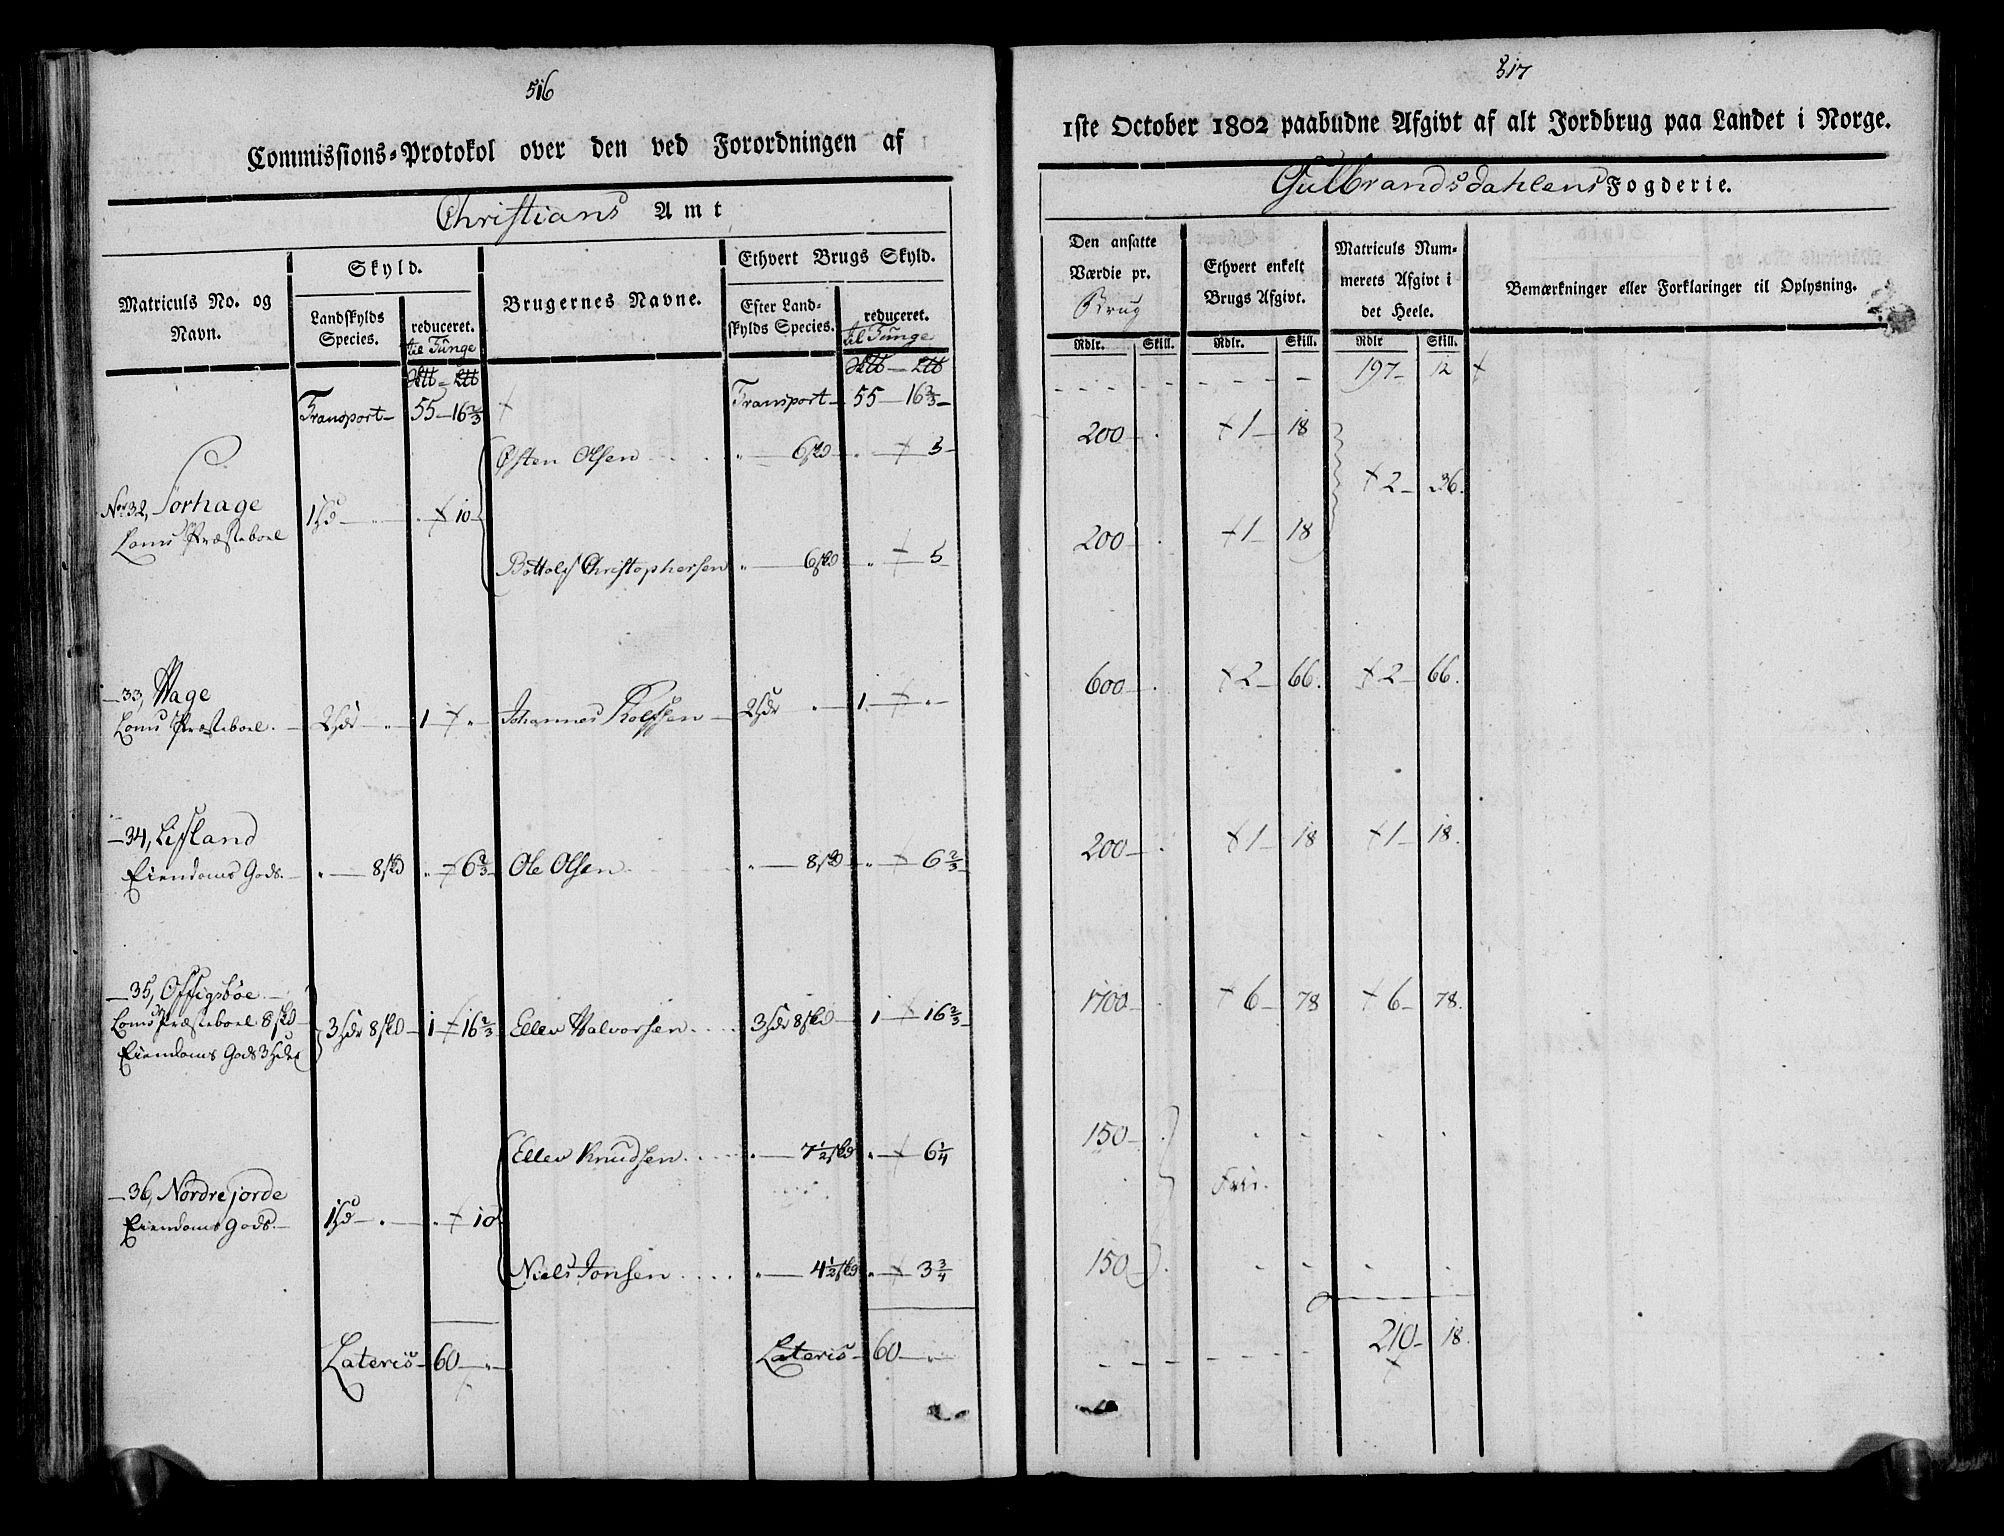 516
Commissions-Protokol over den ved Forordningen af
Christians Amt
Matriculs No. og Navn.
Skyld.
Landskylds Species.
reduceret. til Tunge
Brugernes Navne.
Ethvert Brugs Skyld.
Efter Landskylds Species.
reduceret. til Tunge
Transport 55 — 16 2/3
Transport 55 — 16 2/3
Østen Olsen 6 sk. 5
No 32, Sorhage 1 Hd 10
Loms Præsteboel
Bottolf Christophersen 6 sk. 5
33, Hage
Loms Præsteboel. 2 Hdr 1 Johannes Rolfsen 2 Hdr 1
34, Lisland
Eiendoms Gods. 8 sk. 6 2/3 Ole Olsen 8 sk. 6 2/3
35, Offigsböe
Loms Præsteboel 8 sk. 3 Hdr 8 sk. 1 16 2/3 Ellev Halvorsen 3 Hdr 8 sk. 1 16 2/3
Eiendoms Gods 3 Hdr
Ellev Knudsen 7 1/2 sk. 6 1/4
36, Nordrejorde
Eiendoms Gods. 1 Hd 10
Niels Jonsen 4 1/2 sk. 3 3/4
Lateris 60 Lateris 60
517
1ste October 1802 paabudne Afgivt af alt Jordbrug paa Landet i Norge.
Gulbrandsdahlens Fogderie.
Den ansatte Værdie pr. Brug
Ethvert enkelt Brugs Afgivt.
Matriculs Nummerets Afgivt i det Heele.
Bemærkninger eller Forklaringer til Oplysning.
Rdlr. Skill. Rdlr. Skill. Rdlr Skill.
197 12
200 1 18
2 36.
200 1 18
600 2 66. 2 66.
200 1 18 1 18.
1700 6 78 6 78.
150
Frii.
150
210 18.